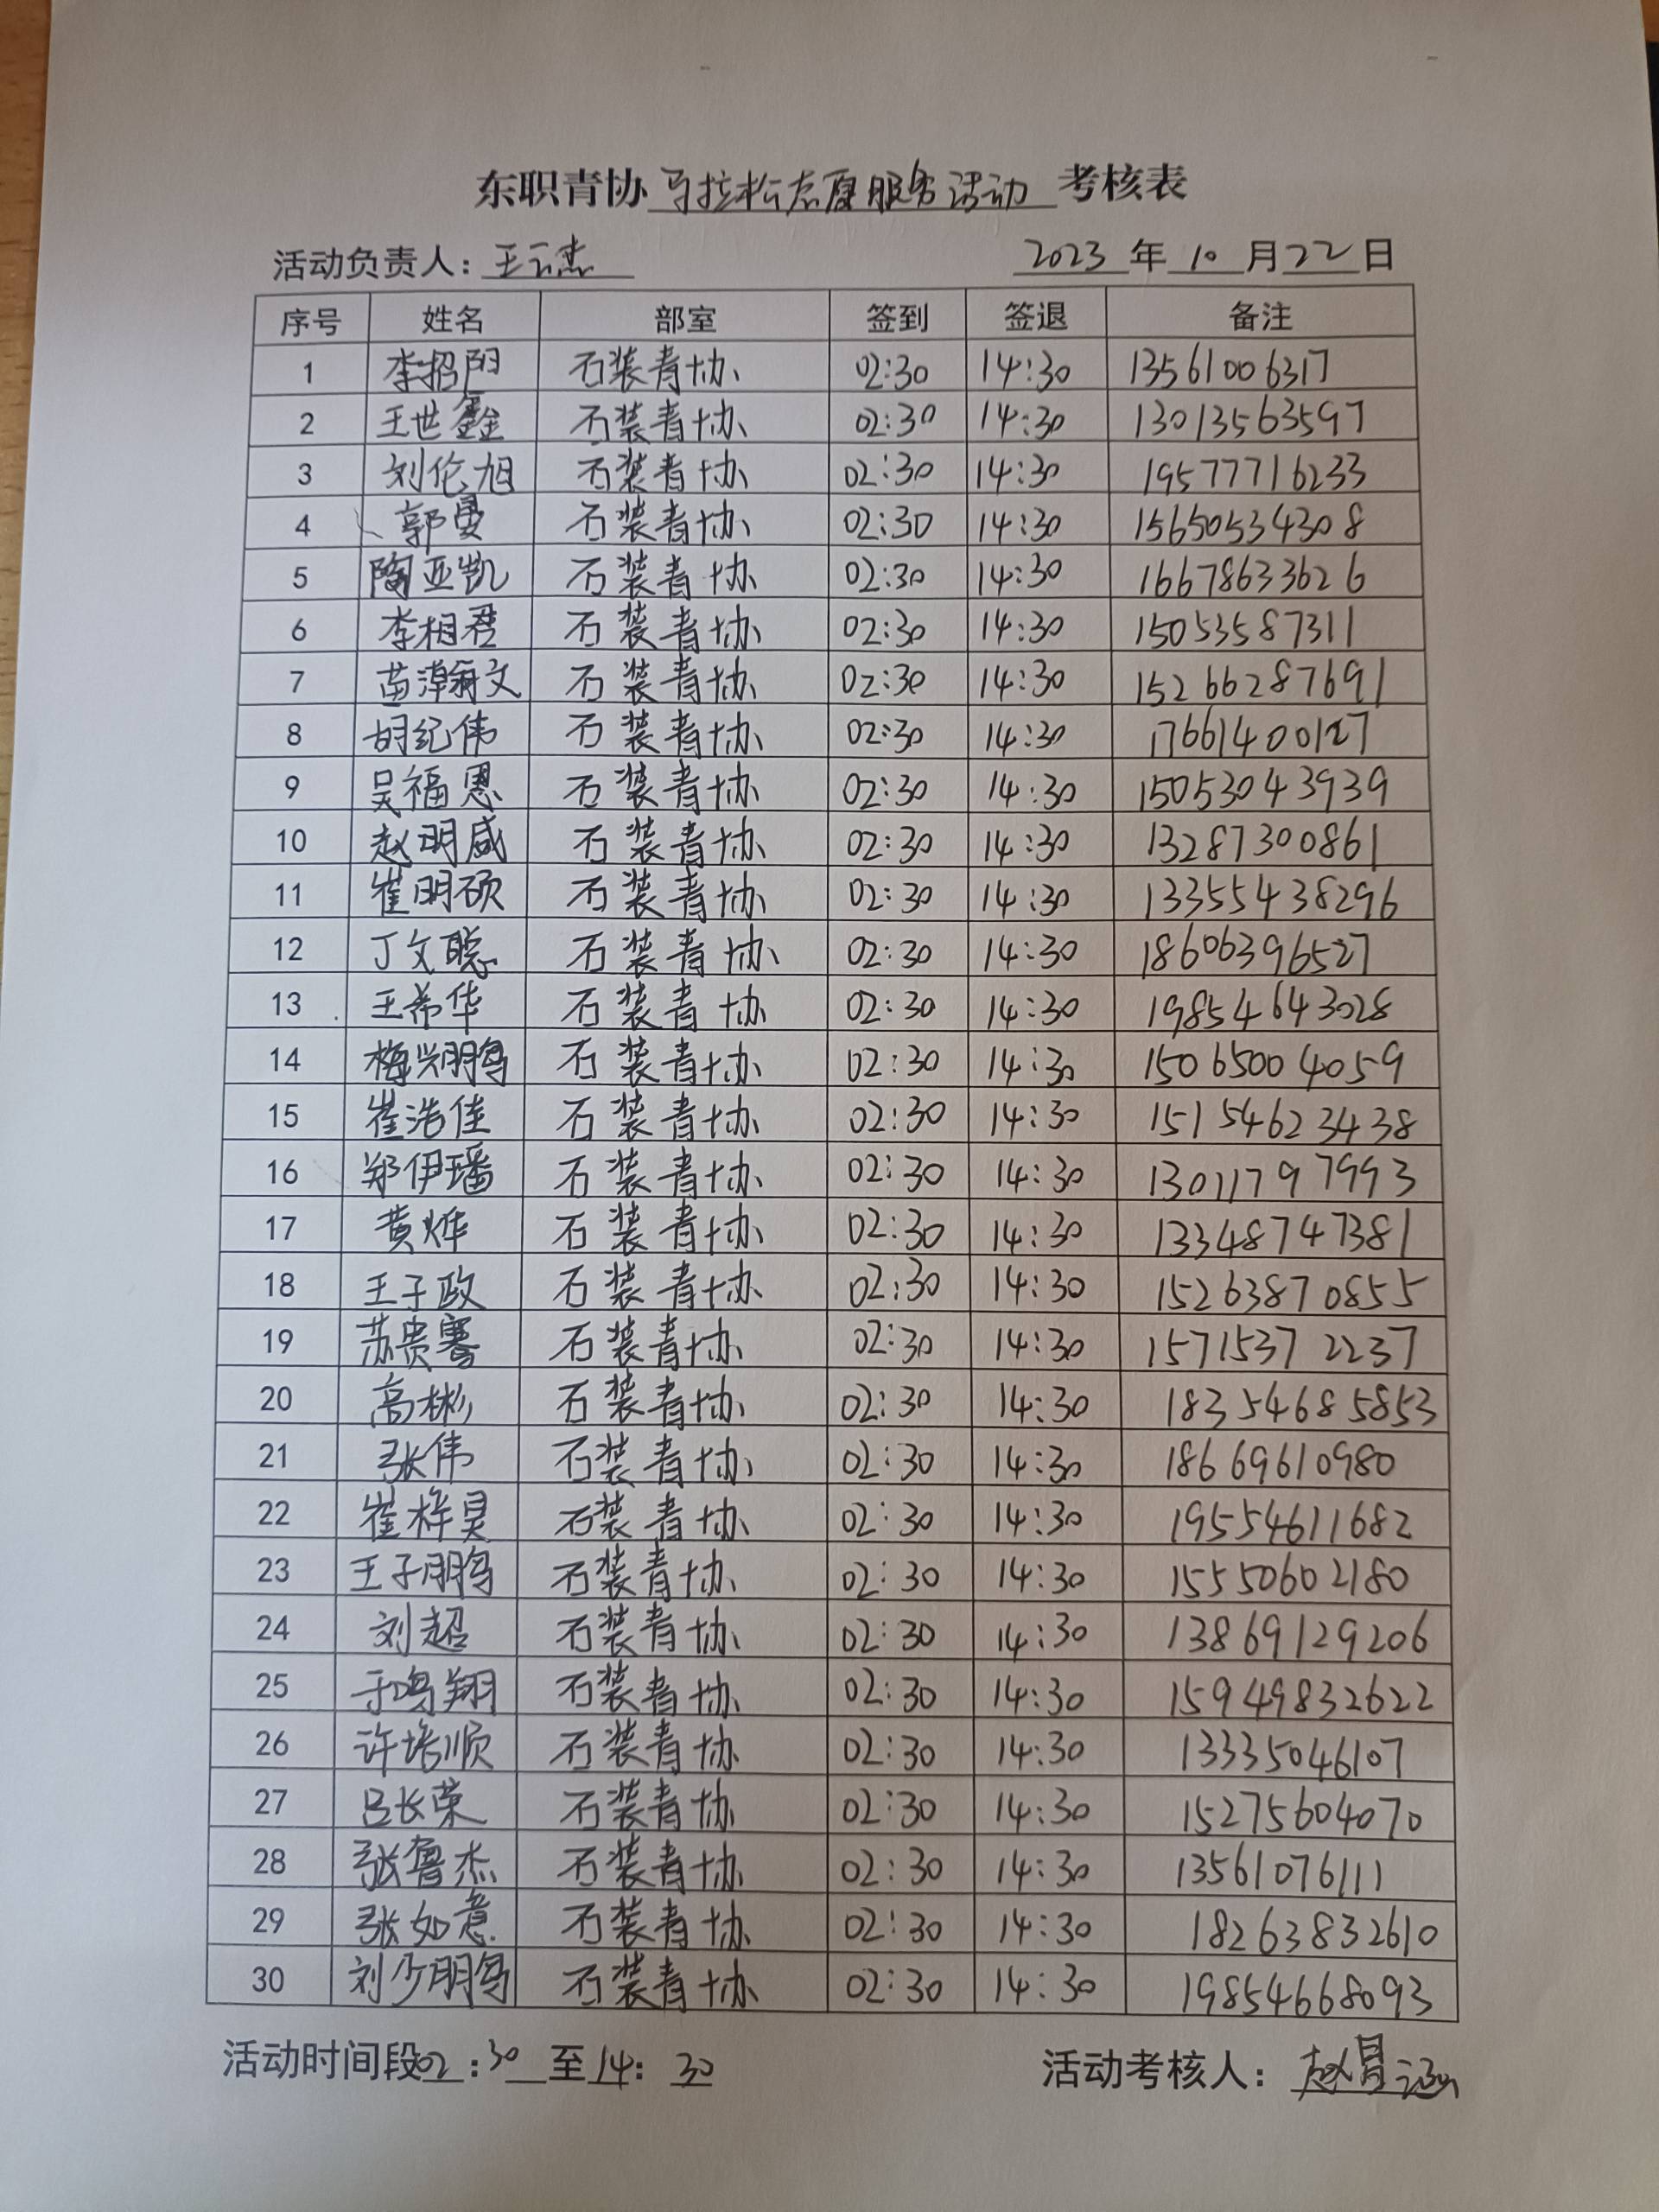 东职青协 马拉松志愿服务活动 考核表
活动负责人：王云杰 2023年10月22日
序号 姓名 部室 签到 签退 备注
1 李招阳 石装青协 02:30 14:30 13561006317
2 王世鑫 石装青协 02:30 14:30 13013563597
3 刘伦旭 石装青协 02:30 14:30 19577716233
4 郭曼 石装青协 02:30 14:30 15650534308
5 陶亚凯 石装青协 02:30 14:30 16678633626
6 李相君 石装青协 02:30 14:30 15053587311
7 苗瀚文 石装青协 02:30 14:30 15266287691
8 胡纪伟 石装青协 02:30 14:30 17661400127
9 吴福恩 石装青协 02:30 14:30 15053043939
10 赵明威 石装青协 02:30 14:30 13287300861
11 崔明硕 石装青协 02:30 14:30 13355438296
12 丁文聪 石装青协 02:30 14:30 18606396527
13 王希华 石装青协 02:30 14:30 19854643028
14 梅兴鹏 石装青协 02:30 14:30 15065004059
15 崔浩佳 石装青协 02:30 14:30 15154623438
16 郑伊璠 石装青协 02:30 14:30 13011797993
17 黄烨 石装青协 02:30 14:30 13348747381
18 王子政 石装青协 02:30 14:30 15263870855
19 苏贵骞 石装青协 02:30 14:30 15715372237
20 高彬 石装青协 02:30 14:30 18354685853
21 张伟 石装青协 02:30 14:30 18669610980
22 崔梓昊 石装青协 02:30 14:30 19554611682
23 王子鹏 石装青协 02:30 14:30 15550602180
24 刘超 石装青协 02:30 14:30 13869129206
25 于鸣翔 石装青协 02:30 14:30 15949832622
26 许培顺 石装青协 02:30 14:30 13335046107
27 吕长荣 石装青协 02:30 14:30 15275604070
28 张鲁杰 石装青协 02:30 14:30 13561076111
29 张如意 石装青协 02:30 14:30 18263832610
30 刘少鹏 石装青协 02:30 14:30 19854668093
活动时间段02:30至14:30 活动考核人：赵昌涵